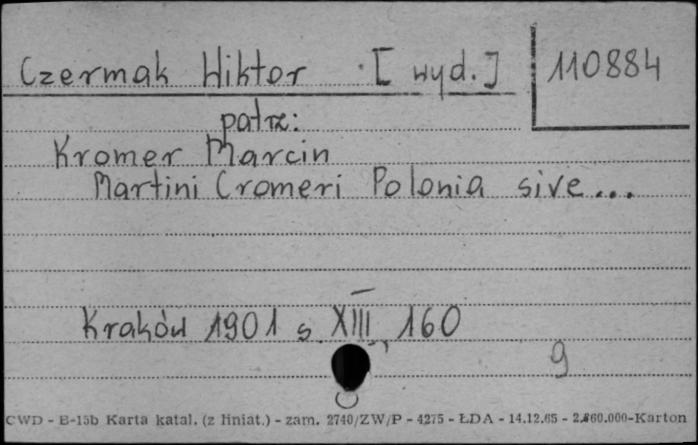 Czermak Wiktor [wyd.] 110884
patrz:
Kromer Marcin
Martini Cromeri Polonia sive...
Kraków 1901 s. XIII, 160
9
CWD - B-15b Karta katal. (z liniat.) - zam. 2740/ZW/P - 4275 - ŁDA - 14.12.65 - 2.860.000-Karton